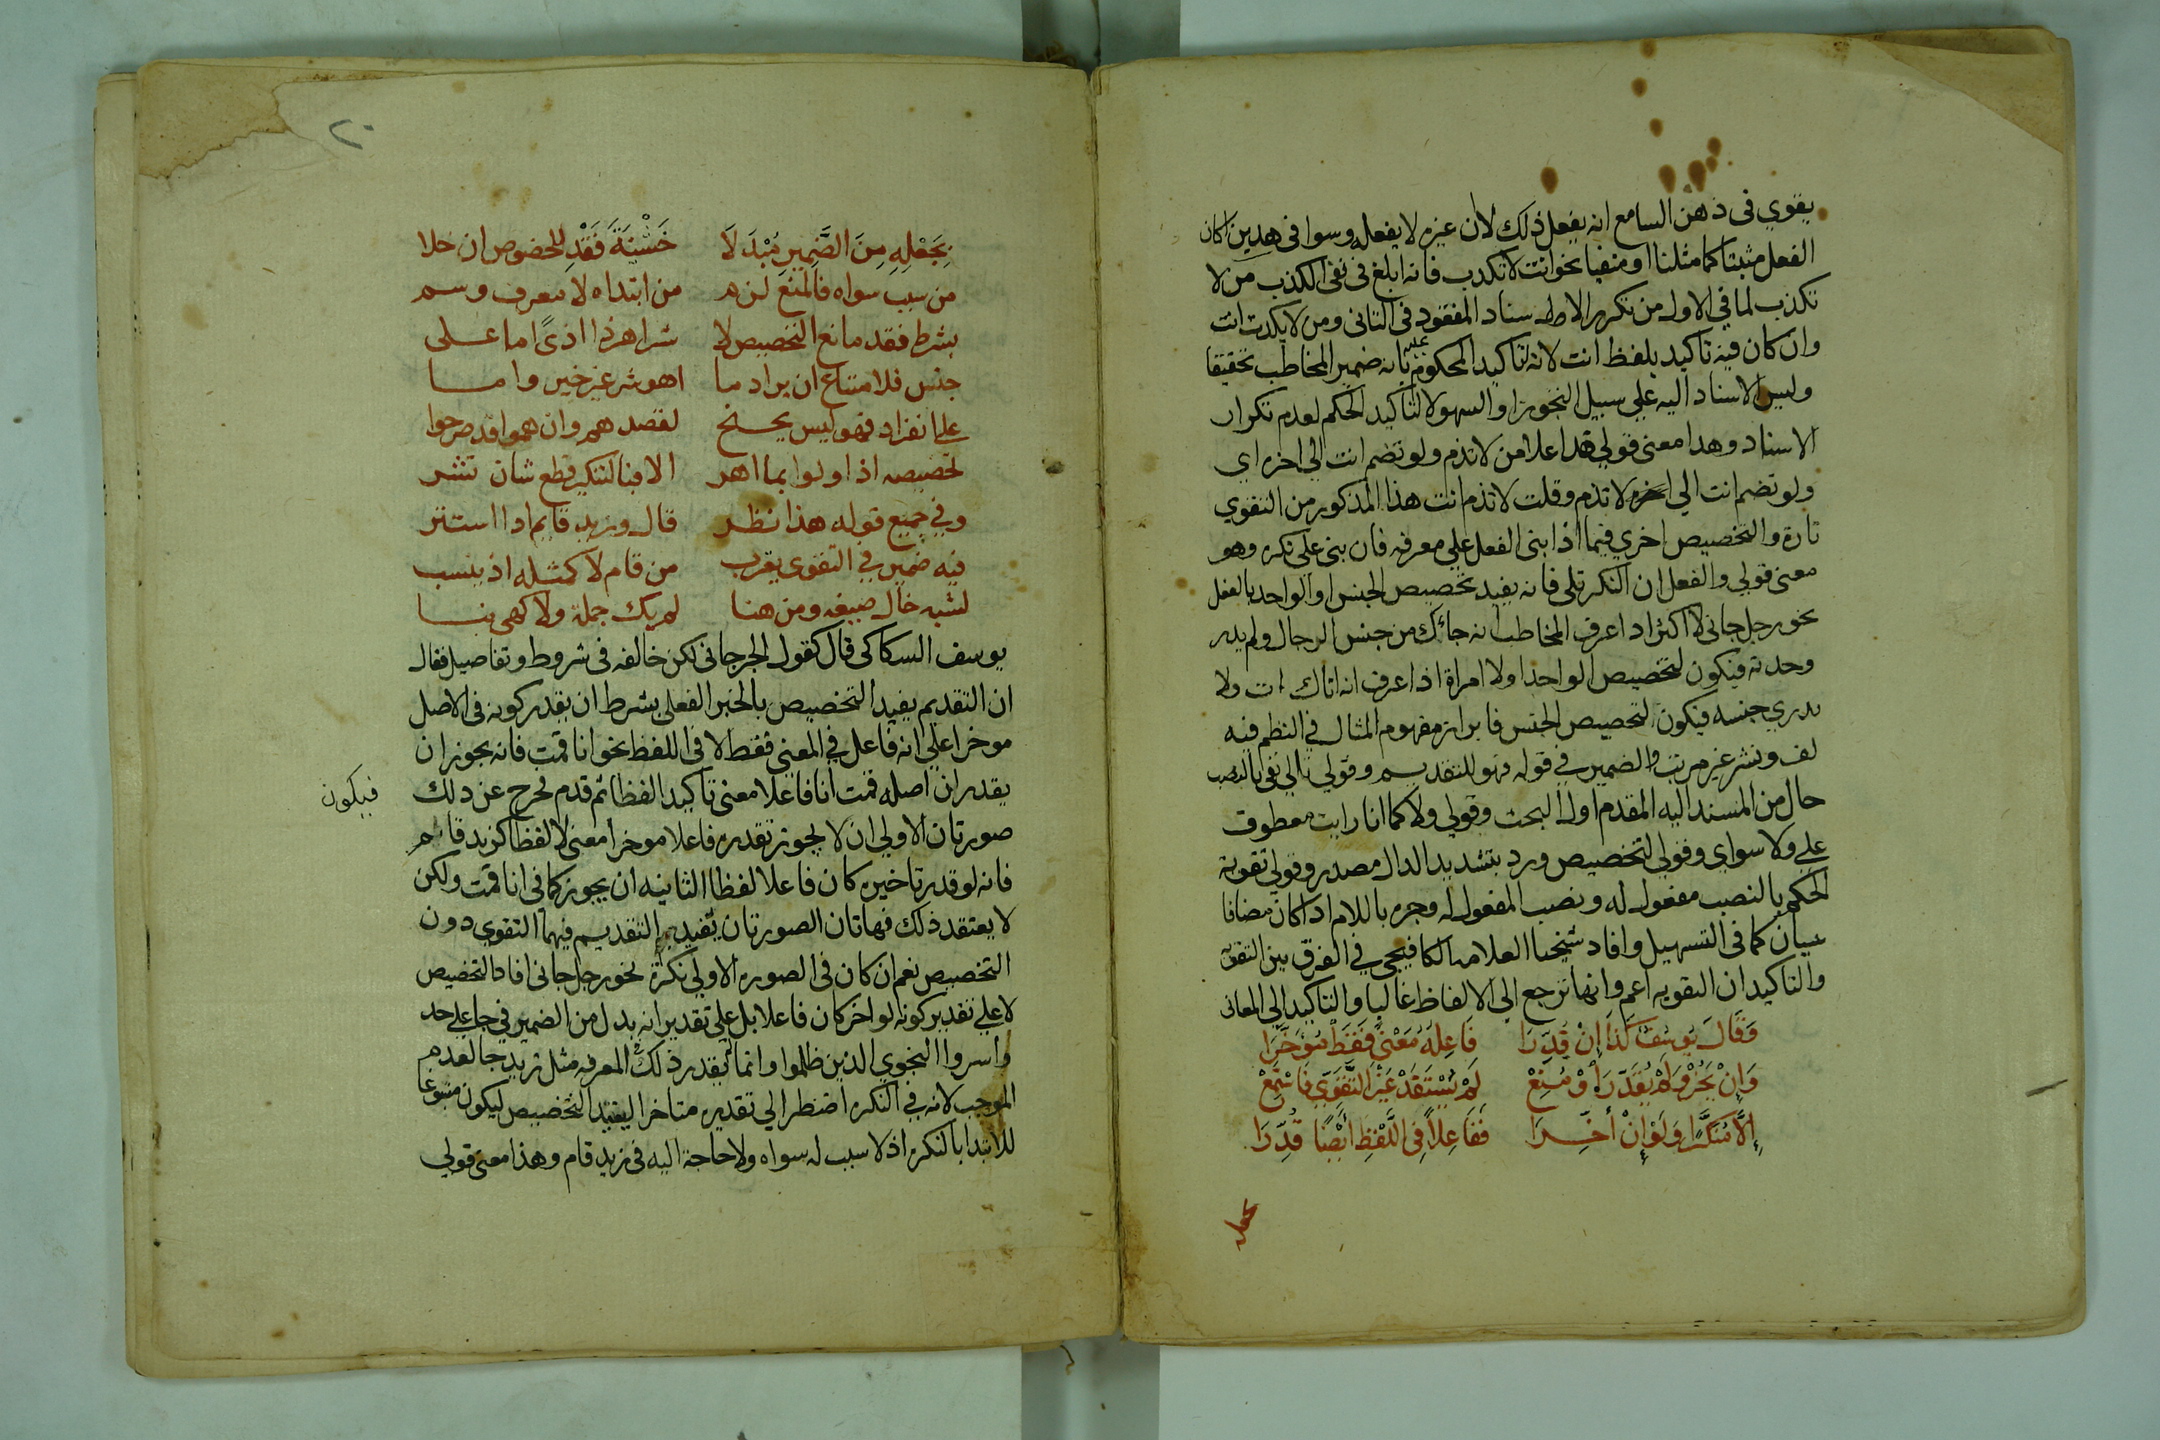 يقوي في ذهن السامع انه يفعل ذلك لان غيره لا يفعله وسوا في هدين اكان
الفعل مثبتا كما مثلنا او منفيا نحو انت لا تكدب فانه ابلغ في نفي الكذب من لا
تكذب لما في الاول من تكرر الاسناد المفقود في الثاني ومن لا يكدب انت
وان كان فيه تاكيد بلفظ انت لانه لتاكيد المحكوم عليه بانه ضمير المخاطب تحقيقا
وليس الاسناد اليه علي سبيل التجوز او السهو لا لتاكيد الحكم لعدم تكرار
الاسناد وهدا معني قولي هدا علا من لا تذم ولو تضم انت الي اخره اي
ولو تضم انت الي اخره لا تذم وقلت لا تذم انت هذا المذكور من التقوي
تارة والتخصيص اخري فيما اذا بني الفعل علي معرفه فان بني علي نكره وهو
معني قولي والفعل ان النكر تلي فانه يفيد تخصيص الجنس او الواحد بالفعل
نحو رجل جاني لا اكثر اذا عرف المخاطب انه جاءك من جنس الرجال ولم يدر
وحدته فيكون لتخصيص الواحد اولا امراة اذا عرف انه اتاك ات ولا
يدري جنسه فيكون لتخصيص الجنس فابراز مفهوم المثال في النظم فيه
لف ونشر غير مرتب والضمير في قوله فهو للتقديم وقولي تالي نفي بالنصب
حال من المسند اليه المقدم اول البحث وقولي ولا كما انا رايت معطوف
علي ولا سواي وقولي لتخصيص ورد بتشديد الدال مصدر وقولي تقوية
الحكم بالنصب مفعول له ونصب المفعول له وجره باللام اذا كان مضافا
سيان كما في التسهيل وافاد شيخنا العلامه الكافيجي في الفرق بين التقويه
والتاكيد ان التقويه اعم وانها ترجع الي الالفاظ غالبا والتاكيد الي المعاني
وَقَالَ يُوسُفُ كَذَا إِنْ قُدِّرَا فَاعِلَهُ مَعْنًى فَقَطْ مُؤَخَّرَا
وَإِنْ يَجُزْ وَلَمْ يُقَدَّرْ أَوْ مُنِعْ لَمْ يُسْتَفَدْ غَيْرُ التَّقَوِّي فَاسْتَمِعْ
إِلَّا مُنَكَّرًا وَلَوْ إِنْ أُخِّرَا فَفَاعِلًا فِي اللَّفْظِ أَيْضًا قُدِّرَا
بجعله
٢٠
بِجَعْلِهِ مِنَ الضَّمِيرِ مُبْدَلَا خَشْيَةَ فَقْدٍ للخصوص ان خلا
من سبب سواه فالمنع لزم من ابتداه لا معرف وسم
بشرط فقد مانع التخصيص لا شر اهر ذا اذًي اما علي
جنس فلامتناع ان يراد ما اهو شر غير خير واما
علي انفراد فهو ليس يجنح لقصدهم وان هموا قد صرحوا
تخصيصه اذ اولوا بما اهر الا فبا لتنكير قطع شان تشر
وفي جميع قوله هذا نظر قال وزيد قايم اذا استتر
فيه ضمير في التقوي يقرب من قام لا كمثله اذ ينسب
لشبه خال صيغه ومن هنا لم يك جملة ولا كهي بنا
يوسف السكاكي قال كقول الجرجاني لكن خالفه في شروط وتفاصيل فقال
ان التقديم يفيد التخصيص بالخبر الفعلي بشرط ان يقدر كونه في الاصل
موخرا علي انه فاعل في المعني فقط لا في اللفظ نحو انا قمت فانه يجوز ان
يقدر ان اصله قمت انا فاعلا معني تاكيدا لفظا ثم قدم فخرج عن ذلك
فيكون
صورتان الاولي ان لا يجوز تقديره فاعلا موخرا معني لا لفظا كزيد قام
فانه لو قدر تاخيره كان فاعلا لفظا الثانيه ان يجوز كما في انا قمت ولكن
لا يعتقد ذلك فهاتان الصورتان يفيد التقديم فيهما التقوي دون
التخصيص نعم ان كان في الصوره الاولي نكرة نحو رجل جاني افاد التخصيص
لا علي تقدير كونه لو اخر كان فاعلا بل علي تقدير انه بدل من الضمير في جا علي حد
واسروا النجوي الذين ظلموا وانما لم يقدر ذلك في المعرفه مثل زيد جا لعدم
الموجب لانه في النكره اضطر الي تقديره متاخرا ليفيد التخصيص ليكون مسوغا
للابتدا بالنكره اذ لا سبب له سواه ولا حاجة اليه في زيد قام وهذا معني قولي